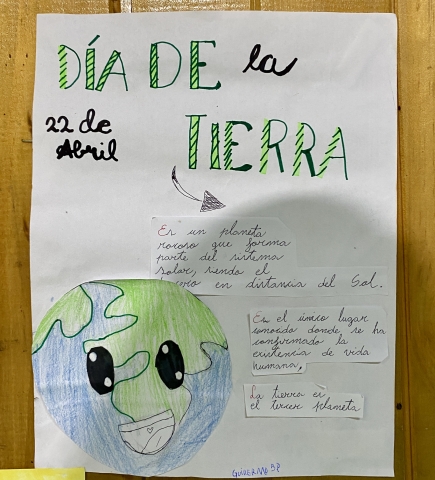 DÍA DE la
22 de
Abril
TIERRA
Es un planeta
rocoso que forma
parte del sistema
solar, siendo el
en distancia del Sol.
Es el único lugar
conocido donde se ha
confirmado la
existencia de vida
humana,
La tierra es
el tercer planeta
GUILLERMO 5º